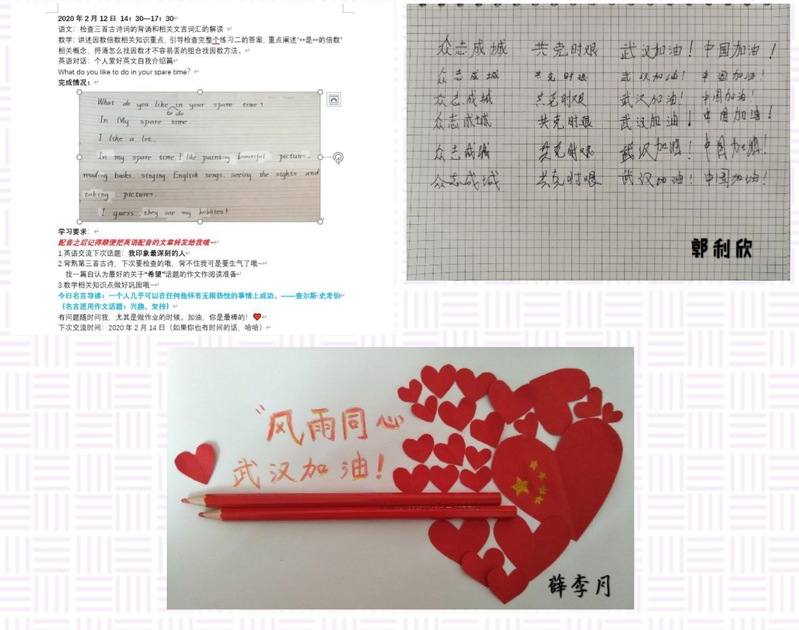 2020 年 2 月 12 日 14：30—17：30
语文：检查三首古诗词的背诵和相关文言词汇的解读
数学：讲述因数倍数相关知识重点，引导检查完整个练习二的答案，重点阐述“**是**的倍数”
相关概念，捋清怎么找因数才不容易丢的组合找因数方法。
英语对话：个人爱好英文自我介绍篇
What do you like to do in your spare time？
完成情况：
What do you like in your spare time?
to do
In My spare time.
I like a lot.
In my spare time, I like painting beautiful pictures,
reading books, singing English songs, seeing the sights and
taking pictures.
I guess, they are my hobbies!
学习要求：
配音之后记得顺便把英语配音的文章转发给我哦~
1.英语交流下次话题：我印象最深刻的人
2.背熟第三首古诗，下次要检查的哦，背不住我可是要生气了哦
找一篇自认为最好的关于“希望”话题的作文作阅读准备
3.数学相关知识点做好巩固哦~
今日名言导读：一个人几乎可以在任何他怀有无限热忱的事情上成功。——查尔斯·史考伯
（名言适用作文话题：兴趣、坚持）
有问题随时问我，尤其是做作业的时候。加油，你是最棒的！
下次交流时间：2020 年 2 月 14 日（如果你也有时间的话，哈哈）
众志成城 共克时艰 武汉加油！中国加油！
众志成城 共克时艰 武汉加油！中国加油！
众志成城 共克时艰 武汉加油！中国加油！
众志成城 共克时艰 武汉加油！中国加油！
众志成城 共克时艰 武汉加油！中国加油！
众志成城 共克时艰 武汉加油！中国加油！
郭利欣
“风雨同心
武汉加油！
薛李月